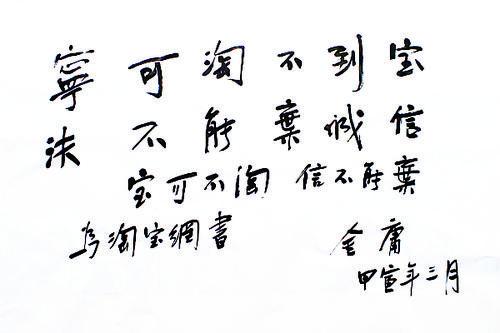 寧可淘不到宝
決不能棄诚信
宝可不淘 信不能棄
為淘宝網書 金庸
甲寅年三月